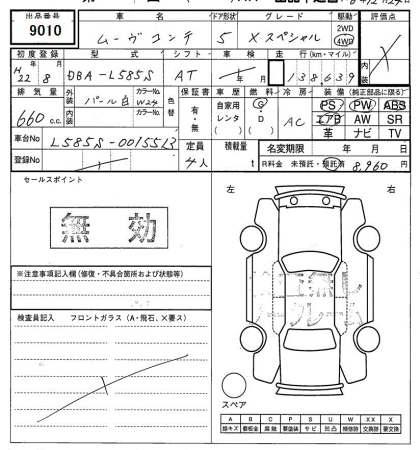 出品番号 車名 ドア形状 グレード 駆動 評価点
9010 ムーヴコンテ 5 Xスペシャル 2WD 4WD X
初度登録 型式 シフト 車検 走行(km・マイル) 内装
H22年8月 DBA-L585S AT 年 月 138,639
排気量 外装 パール白 カラーNo. W24 色替 保証書 車歴 燃料 冷房 装備(純正部品に限る)
660 c.c. 内装 カラーNo. 有・無 自家用 レンタ ( ) G・D ( ) AC PS PW ABS
エアB AW SR
革 ナビ TV
車台No L585S-0015513 定員 4人 積載量 t 名変期限 年 月 日
登録No R料金 未預託・預託済 8,960円
セールスポイント 左 右
無効
※注意事項記入欄(修復・不具合箇所および状態等)
検査員記入 フロントガラス(A・飛石、X要ス)
スペア
A B C P S U W XX X
線キズ 要板金 腐蝕 要塗装 サビ 凹凸 補修跡 交換跡 要交換